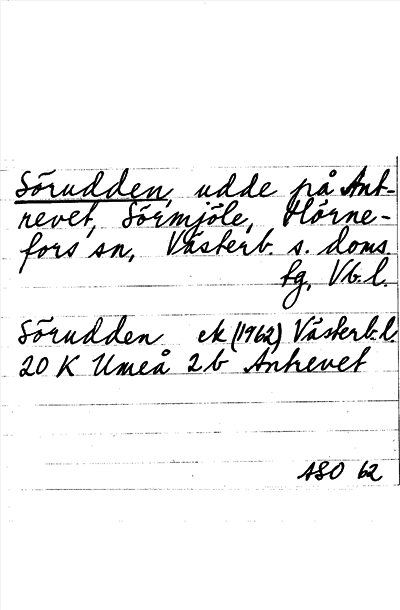 Sörudden, udde på Ant-
revet, Sörmjöle, Hörne-
fors sn, Västerb. s. doms.
tg, Vb. l.
Sörudden ek (1962) Västerb. l.
20 K Umeå 2 b Antrevet
ASO 62